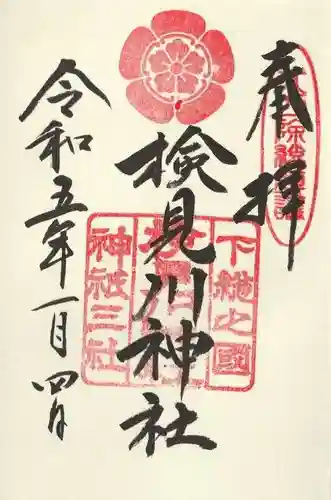 奉拝
検見川神社
令和五年一月四日
下総之國
神祇三社